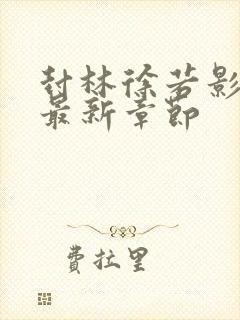 封林徐若影
最新章节
费拉里